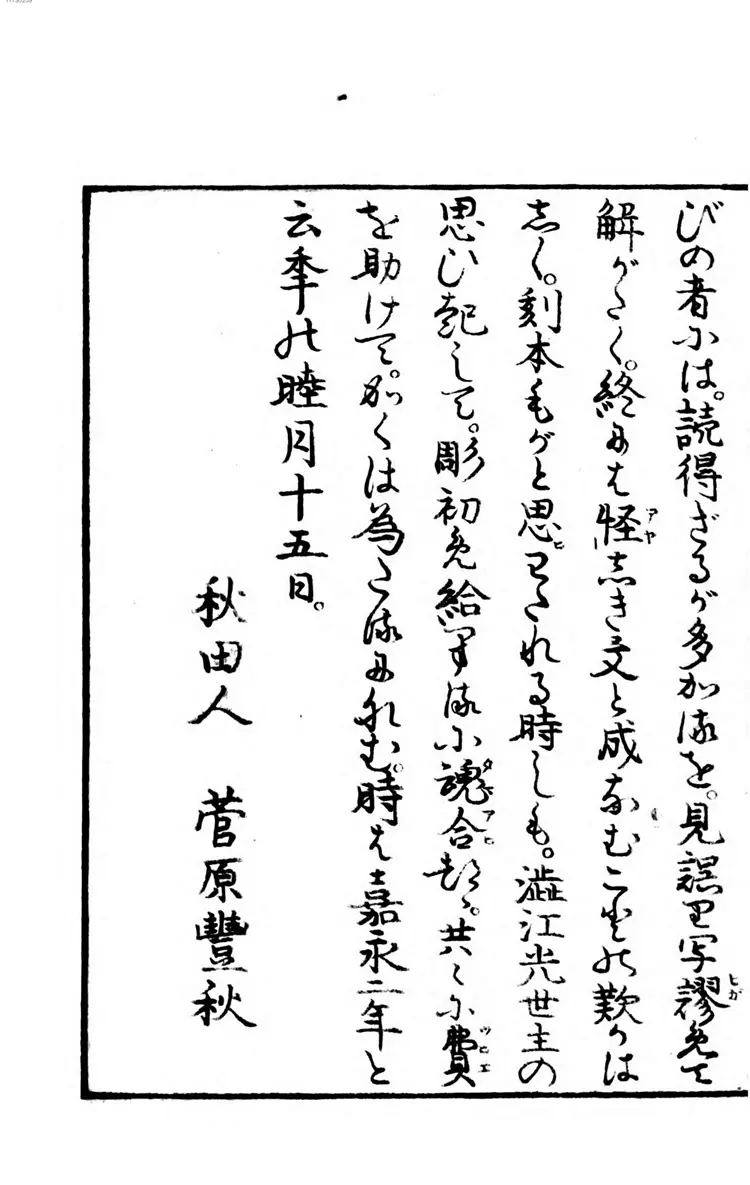 びの者には。読得ざるが多かるを。見誤り写謬めて
解がたく。終には怪しき文と成なむことの歎かは
しく。刻本もがと思わたれる時しも。澁江光世主の
思ひ起して。彫初め給へるに魂合つゝ。共々に費
を助けて。かくは為たるになむ。時は嘉永二年と
云年の睦月十五日。
秋田人　菅原豐秋